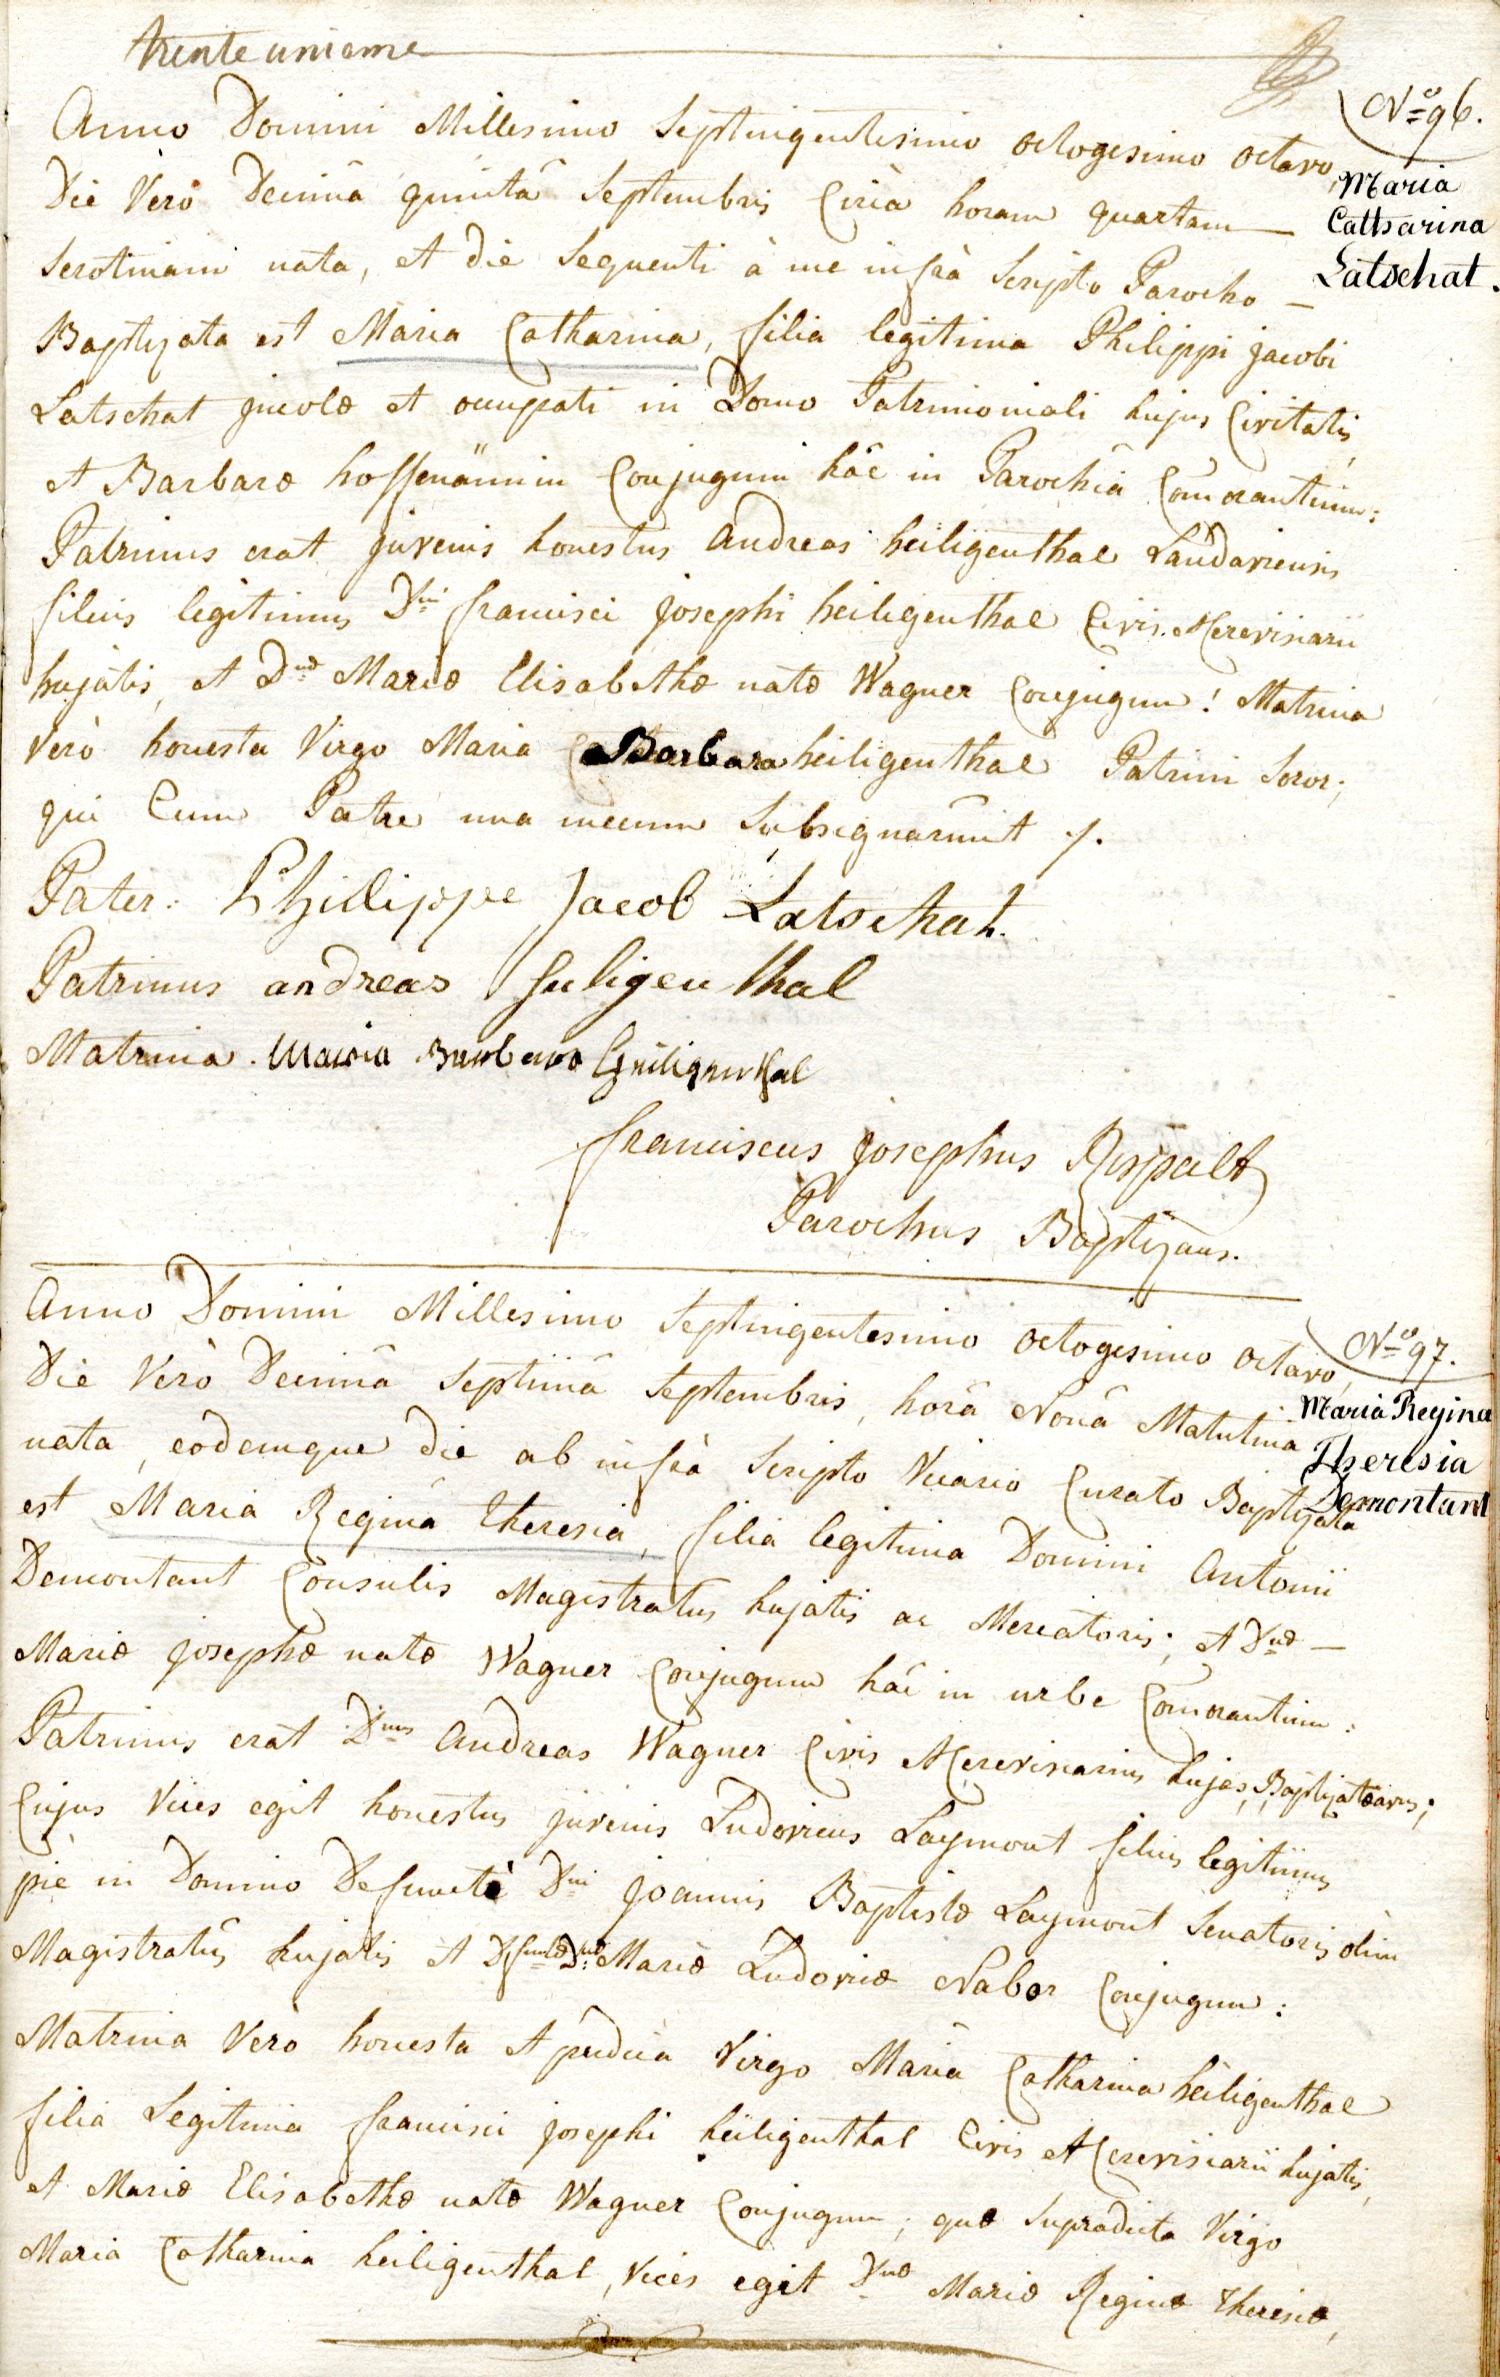 trente unieme
Nº 96.
Maria
Catharina
Latschat.
Anno Domini Millesimo Septingentesimo octogesimo octavo,
Die Verò Decimâ quintâ Septembris Circà horam quartam
Serotinam nata, et die Sequenti à me infrà Scripto Parocho
Baptizata est Maria Catharina, filia legitima Philippi jacobi
Latschat incolæ et occupati in Domo Patrimoniali hujus Civitatis,
et Barbaræ hoffmännin Conjugum hâc in Parochiâ Com̄orantium:
Patrinus erat juvenis honestus Andreas heiligenthal Landaviensis
filius legitimus Dni francisci josephi heiligenthal Civis et Cerevisiarii
hujatis, et Dnæ Mariæ Elisabethæ natæ Wagner Conjugum! Matrina
Verò honesta Virgo Maria Barbara heiligenthal Patrini Soror;
qui Cum Patre una mecum Subsignarunt ./.
Pater: Philippe Jacob Latschat.
Patrinus andreas heiligenthal
Matrina. Maria Barbara Heiligenthal
franciscus josephus Rispalt
Parochus Baptizans.
Nº 97.
Maria Regina
Theresia
Demontant
Anno Domini Millesimo Septingentesimo octogesimo octavo,
Die Verò Decimâ Septimâ Septembris, horâ Nonâ Matutina
nata, eodemque die ab infrà Scripto Vicario Curato Baptizata
est Maria Regina Theresia, filia legitima Domini Antonii
Demontant Consulis Magistratus hujatis ac Mercatoris; et Dnæ
Mariæ josephæ natæ Wagner Conjugum hâc in urbe Com̄orantium:
Patrinus erat Dnus Andreas Wagner Civis et Cerevisiarius hujas, Baptizatæ avus;
Cujus Vices egit honestus juvenis Ludovicus Laymont filius legitimus
piè in Domino Defuncti Dni joannis Baptistæ Laymont Senatoris olim
Magistratûs hujatis et Dfunctæ Dnæ Mariæ Ludovicæ Nabor Conjugum:
Matrina Verò honesta et pudica Virgo Maria Catharina heiligenthal
filia Legitima francisci josephi heiligenthal Civis et Cerevisiarii hujatis,
et Mariæ Elisabethæ natæ Wagner Conjugum; quæ Supradicta Virgo
Maria Catharina heiligenthal, Vices egit Dnæ Mariæ Reginæ Theresiæ,